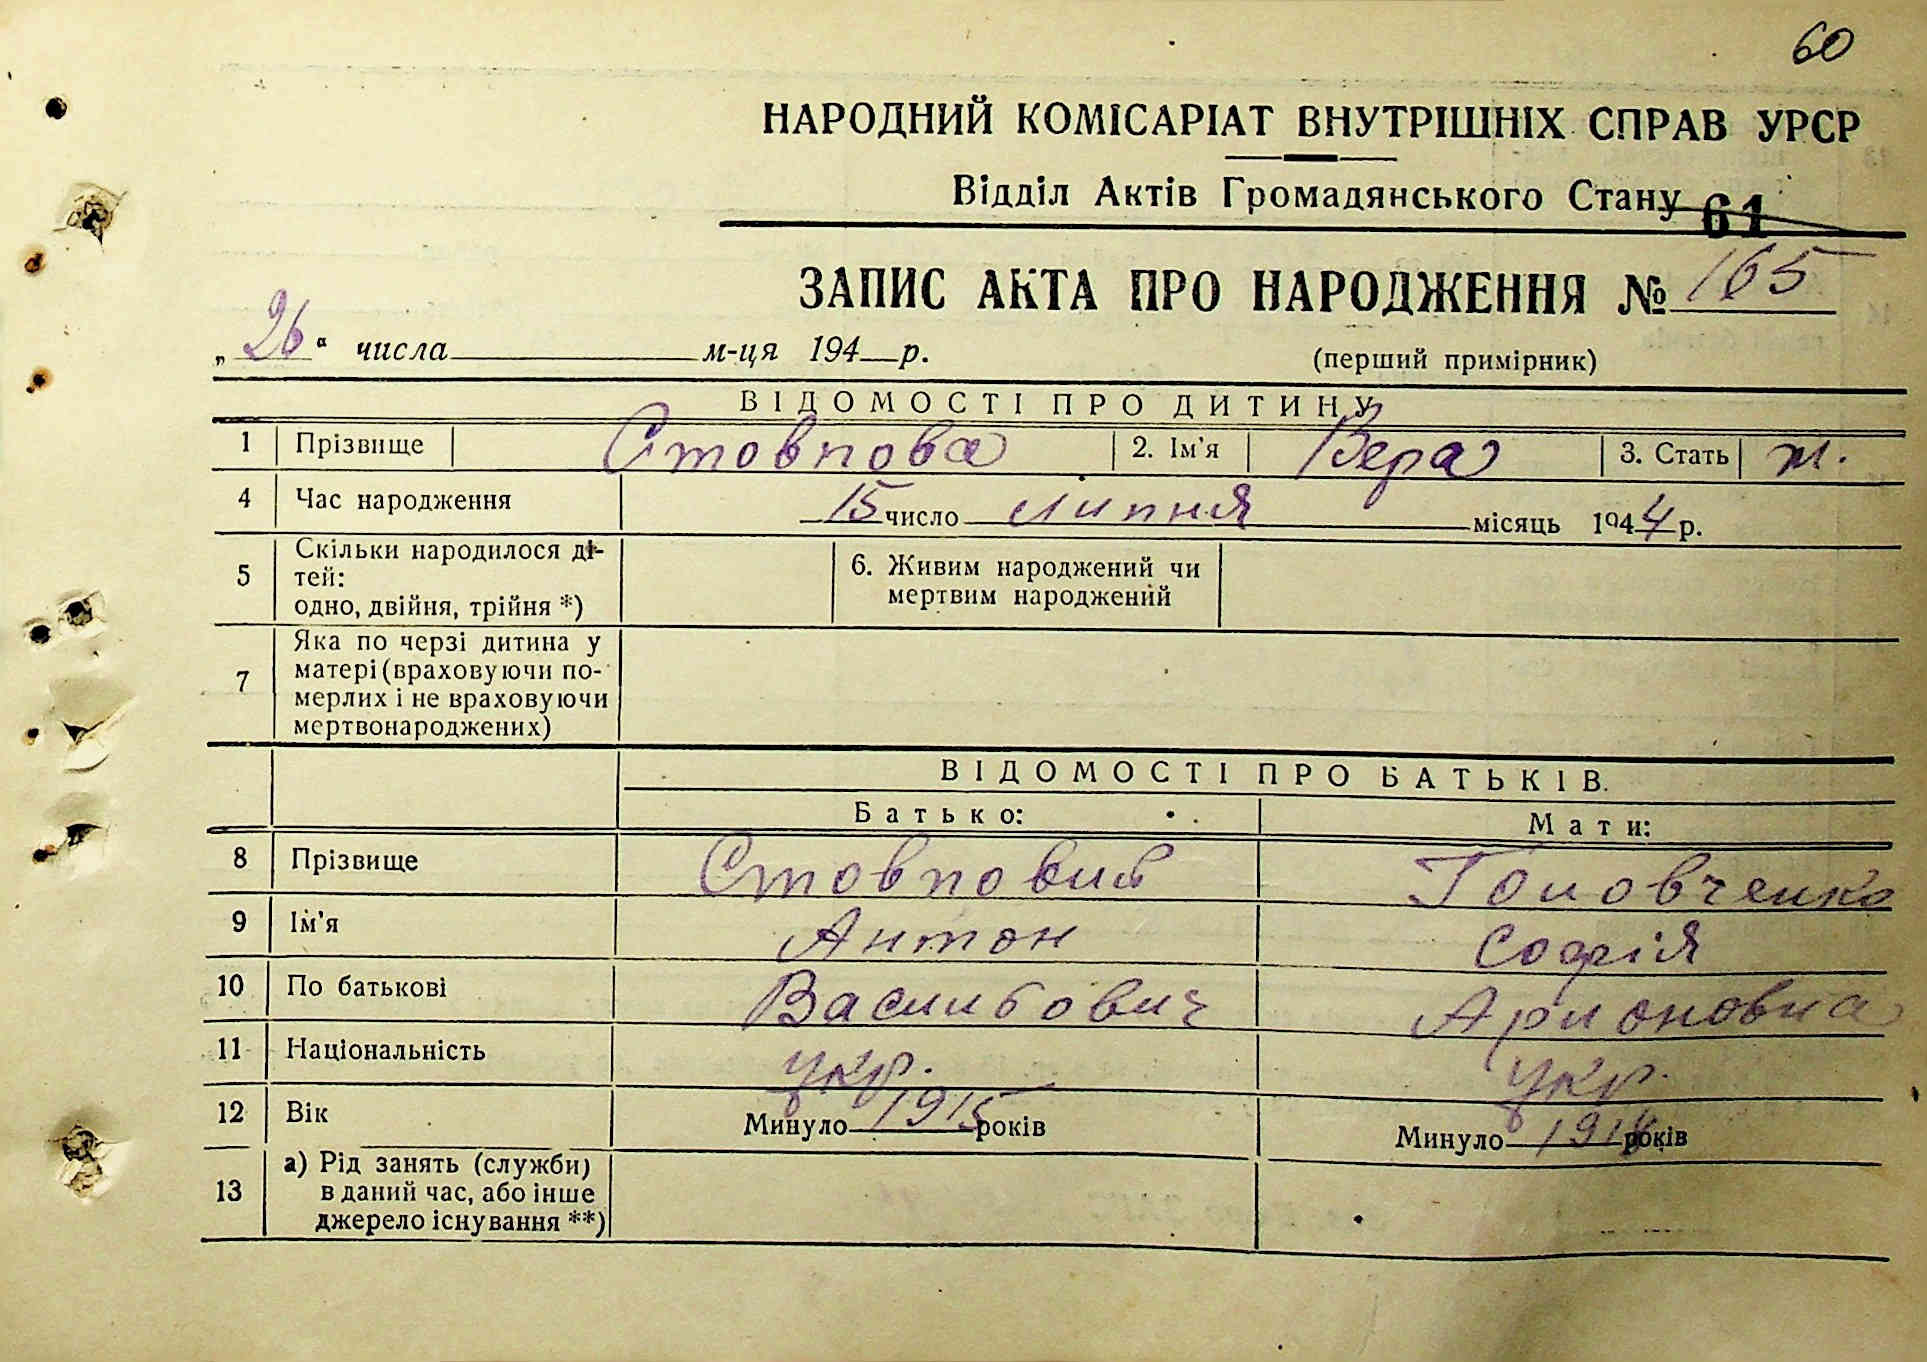 60
НАРОДНИЙ КОМІСАРІАТ ВНУТРІШНІХ СПРАВ УРСР
Відділ Актів Громадянського Стану 61
ЗАПИС АКТА ПРО НАРОДЖЕННЯ № 165
„26“ числа м-ця 194 р. (перший примірник)
ВІДОМОСТІ ПРО ДИТИНУ
1 Прізвище Стовпова 2. Ім'я Вера 3. Стать ж.
4 Час народження 15 число липня місяць 1944 р.
5 Скільки народилося ді-
тей:
одно, двійня, трійня *)
6. Живим народжений чи
мертвим народжений
7 Яка по черзі дитина у
матері (враховуючи по-
мерлих і не враховуючи
мертвонароджених)
ВІДОМОСТІ ПРО БАТЬКІВ.
Батько: Мати:
8 Прізвище Стовповий Головченко
9 Ім'я Антон Софія
10 По батькові Васильович
11 Національність укр. укр.
12 Вік Минуло 1915 років Минуло років
13 а) Рід занять (служби)
в даний час, або інше
джерело існування **)